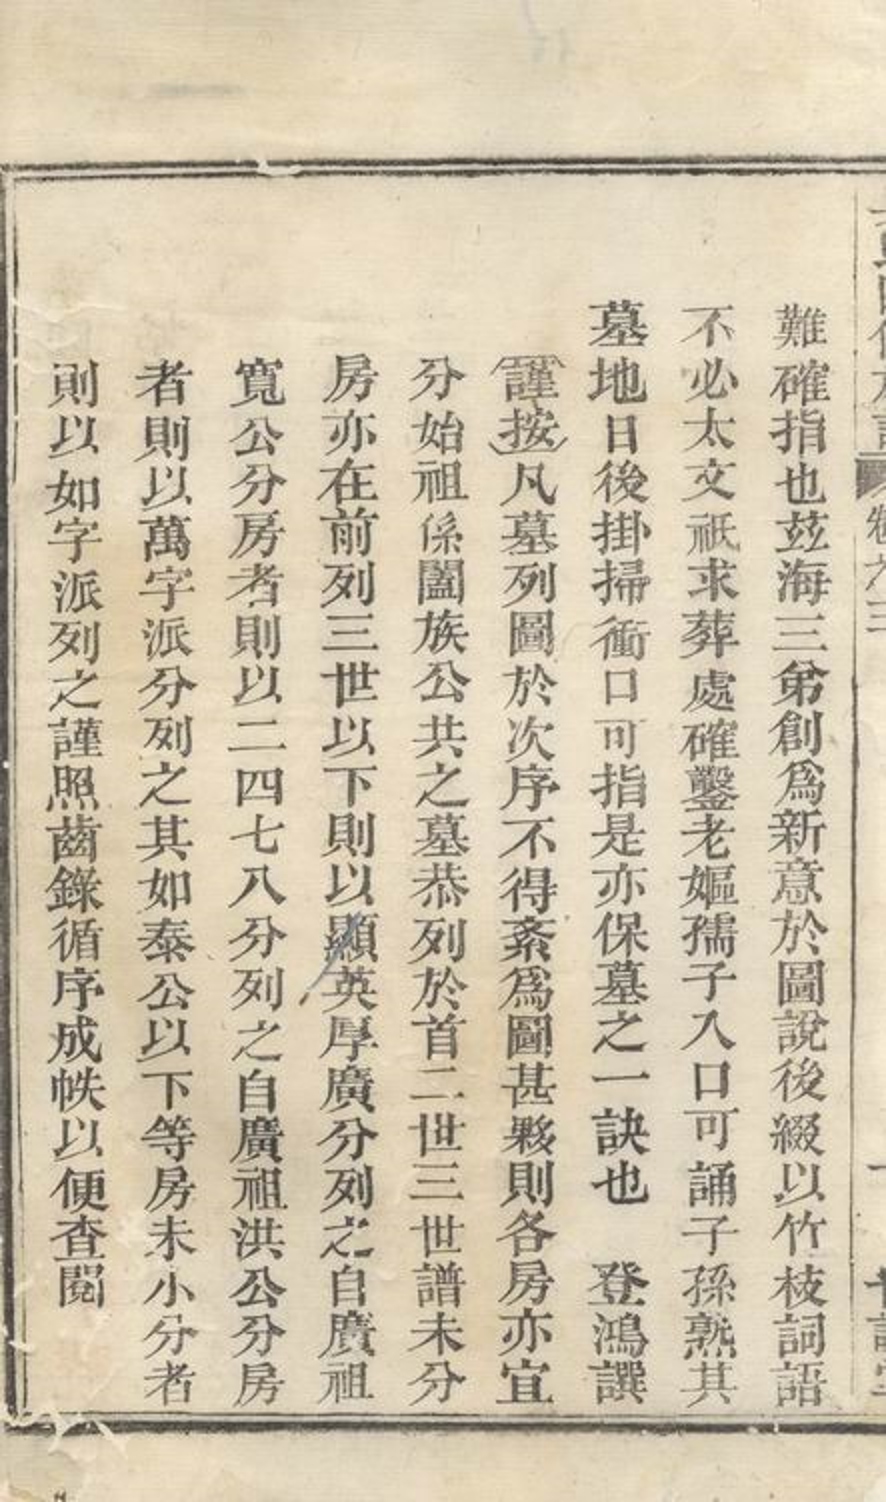 卷之三
難確指也茲海三弟創爲新意於圖說後綴以竹枝詞語
不必太文祇求葬處確鑿老嫗孺子入口可誦子孫熟其
墓地日後掛掃衝口可指是亦保墓之一訣也 登鴻譔
謹按凡墓列圖於次序不得紊爲圖甚夥則各房亦宜
分始祖係闔族公共之墓恭列於首二世三世譜未分
房亦在前列三世以下則以顯英厚廣分列之自廣祖
寬公分房者則以二四七八分列之自廣祖洪公分房
者則以萬字派分列之其如泰公以下等房未小分者
則以如字派列之謹照齒錄循序成帙以便查閱